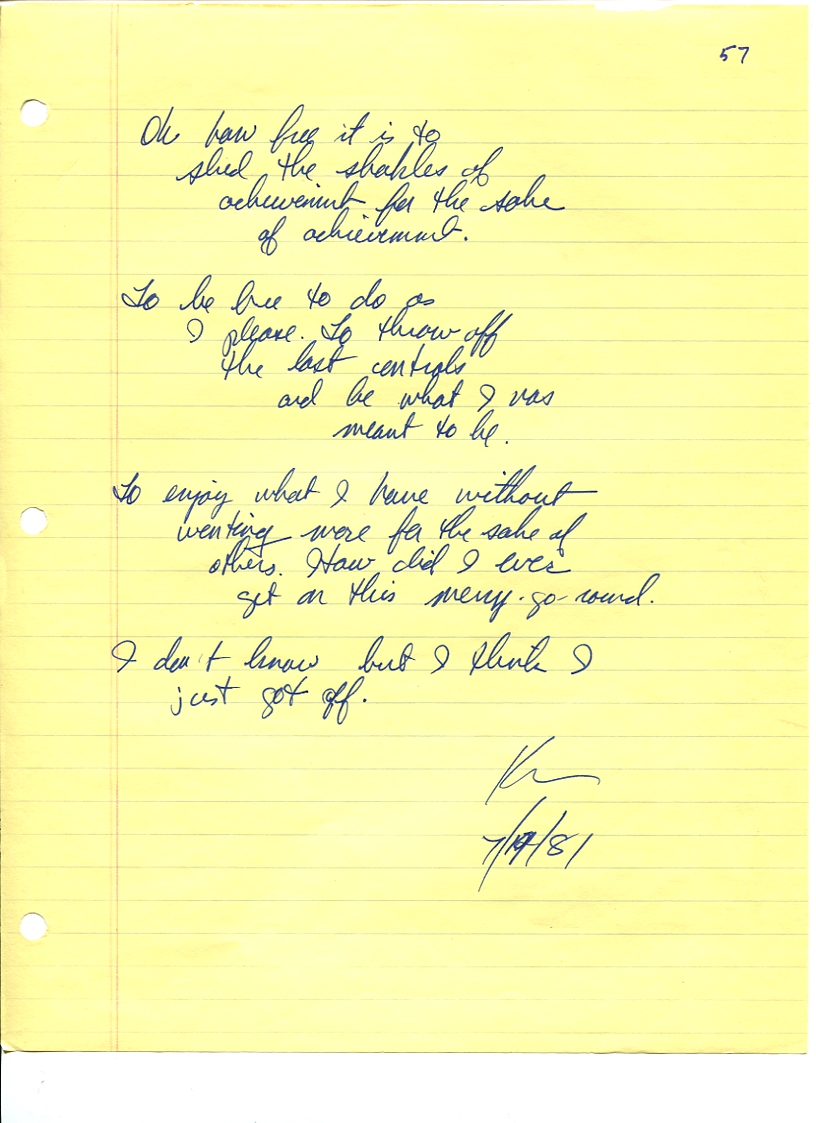 57
Oh how free it is to
shed the shakles of
achievement for the sake
of achievement.
To be free to do as
I please. To throw off
the last controls
and be what I was
meant to be.
To enjoy what I have without
wanting more for the sake of
others. How did I ever
get on this merry-go-round.
I don't know but I think I
just got off.